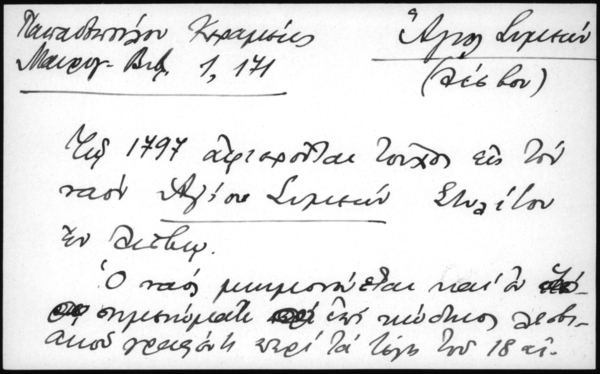 Παπαδοπούλου Κεραμεύς
Μαυρογ. Βιβ. 1, 171
Ἅγιος Συμεών
(Λέσβου)
Τῷ 1797 ἀφιεροῦται τοῦχος εἰς τὸν
ναὸν Ἁγίου Συμεὼν Στυλίτου
ἐν Λέσβῳ.
Ὁ ναὸς μνημονεύεται καὶ ἐν
σημειώματι ἐπὶ κώδικος λεσβι-
ακοῦ γραφέντι περὶ τὰ τέλη τοῦ 18 αἰ.